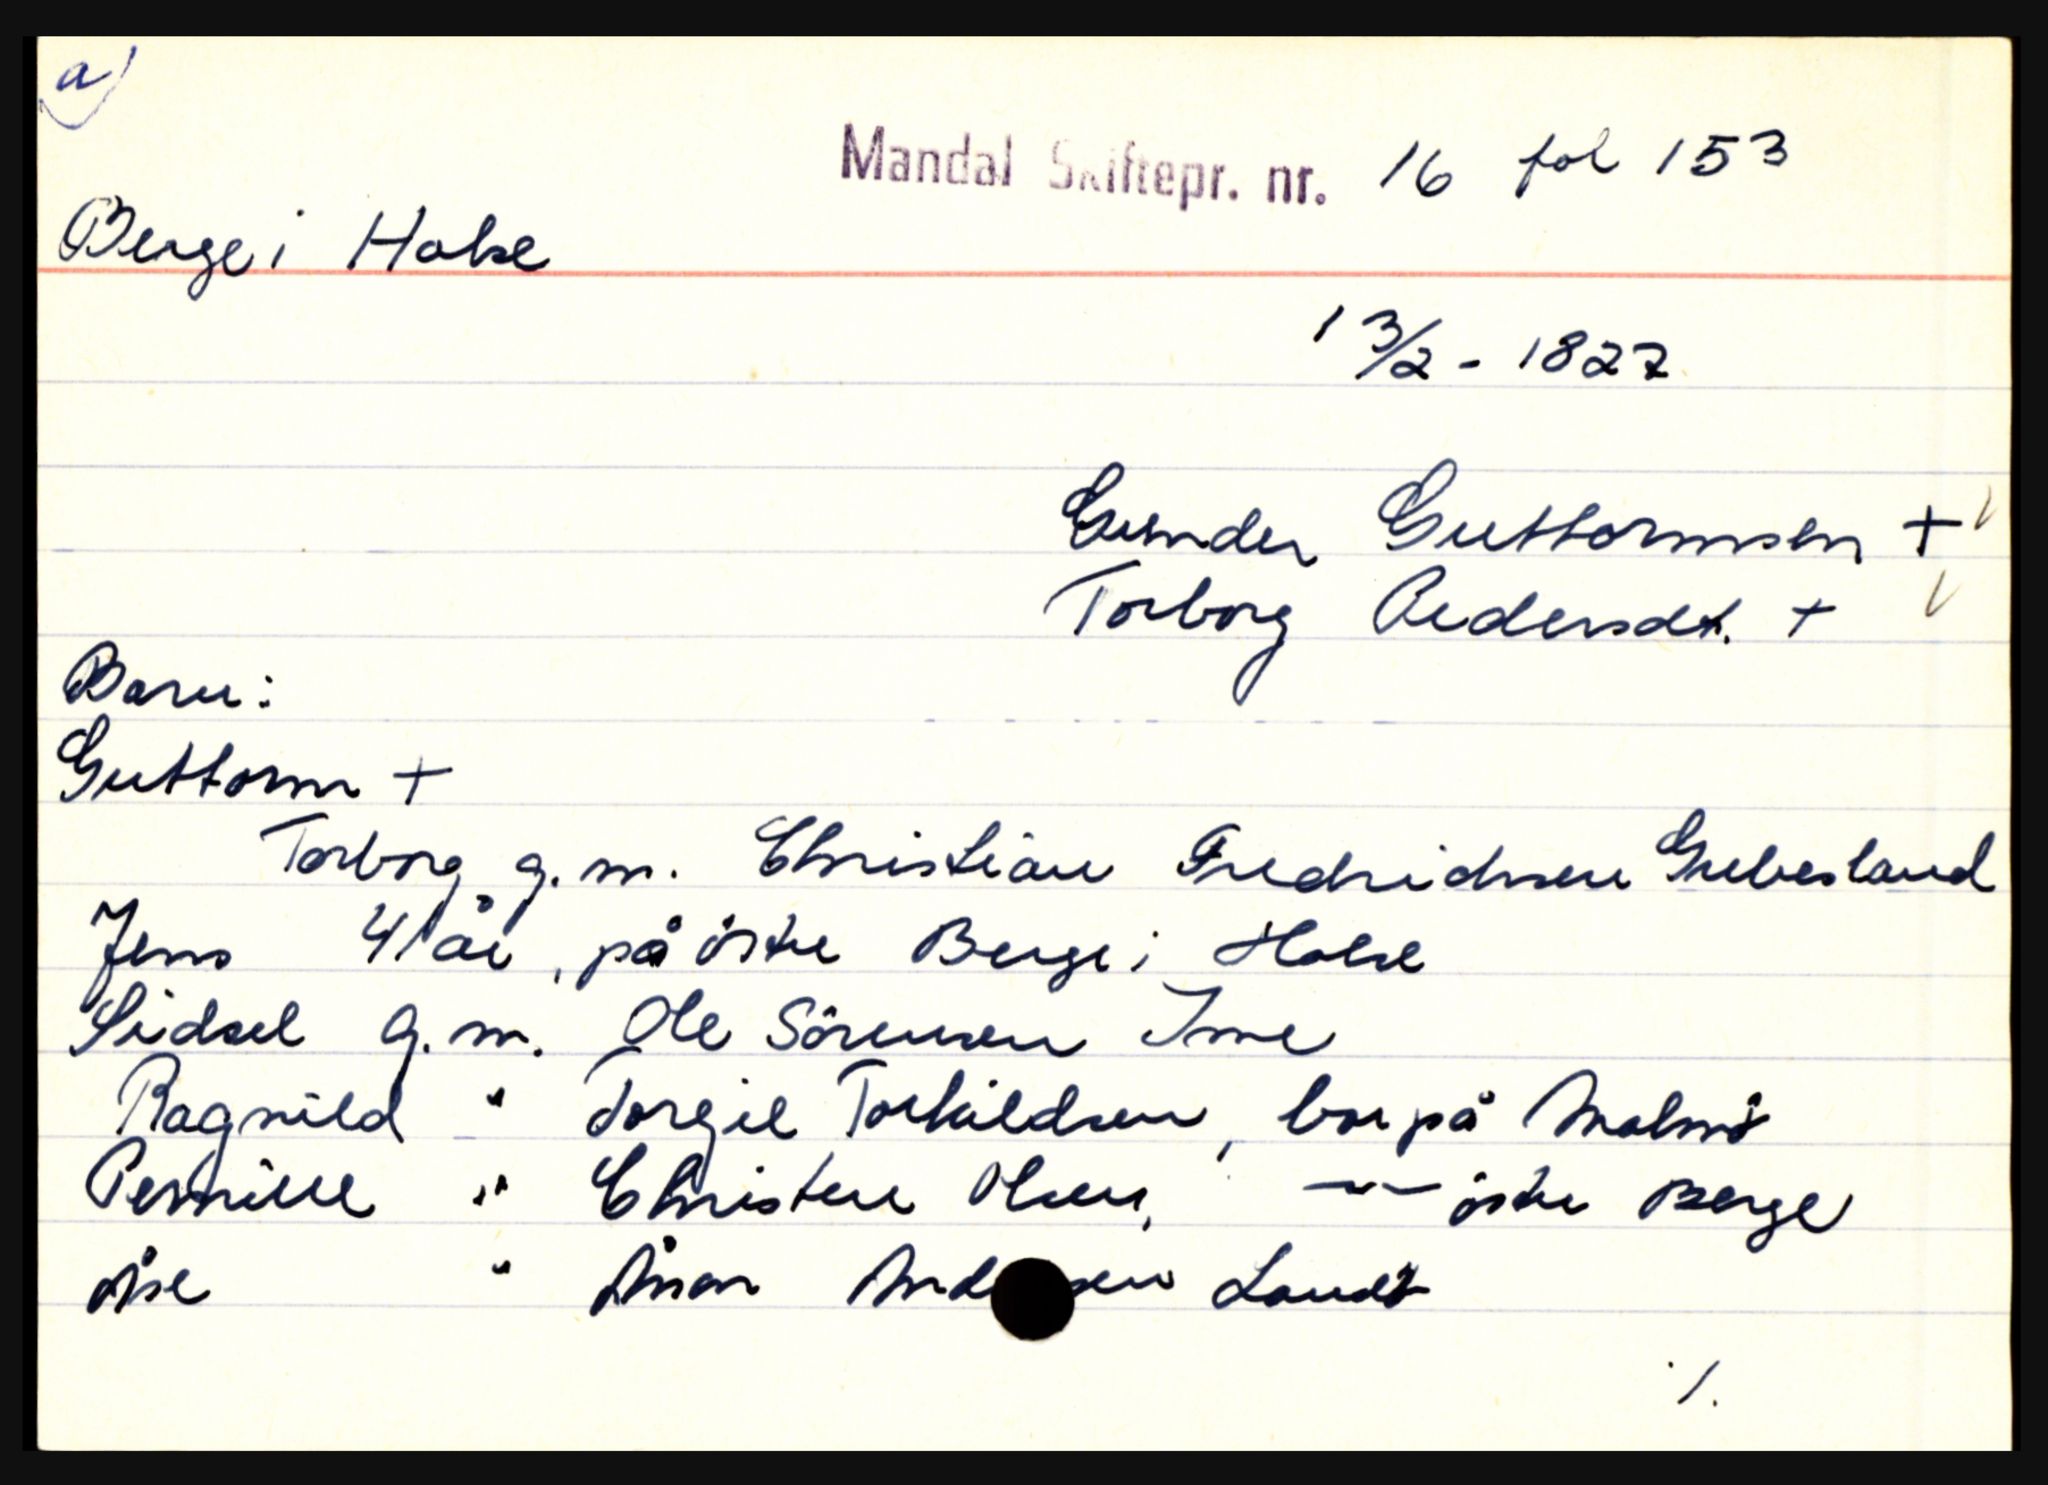 a)
Mandal Skiftepr. nr. 16 fol 153
Berge i Halse
13/2 - 1827
Gunder Guttormsen +
Torborg Pedersdt. +
Barn:
Guttorm +
Torborg g.m. Christian Fredrichsen Gubesland
Jens 41 år, på östre Berge i Halse
Sidsel g.m. Ole Sörensen Ime
Ragnild " Torgil Torkildsen, bor på Malmö
Pernille " Christen Olsen, -"- östre Berge
Åse " Ånon And sen Landö
./.